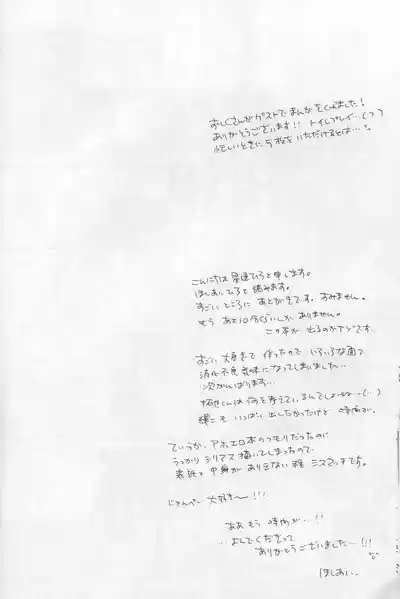 おしくさんがゲストでまんがをくれました!
ありがとうございます!! トイレプレイ…(っ)
忙しいときに 5枚も いただけるとは…
こんにちは 星逢ひろと申します。
ほしあいひろと読みます。
すごい ところに あとがきです。すみません。
もう あと10分くらいしか ありません。
この本が 出るのか
すごい 大急ぎで 作ったので いろいろな面で
消化不良気味になってしまいました…
次がんばります…
くんは何を考えているんでしょーね…(…)
も いっぱい 出したかったけど 時間が。
ていうか、アホエロ本のつもりだったのに
うっかり シリアス 描いてしまったので
表紙と 中身が ありえない程 ミスマッチです。
じゅんぺー 大好き〜!!!
ああ もう 時間が…!!
…よんでくださって
ありがとうございました…!!!
ほしあい。